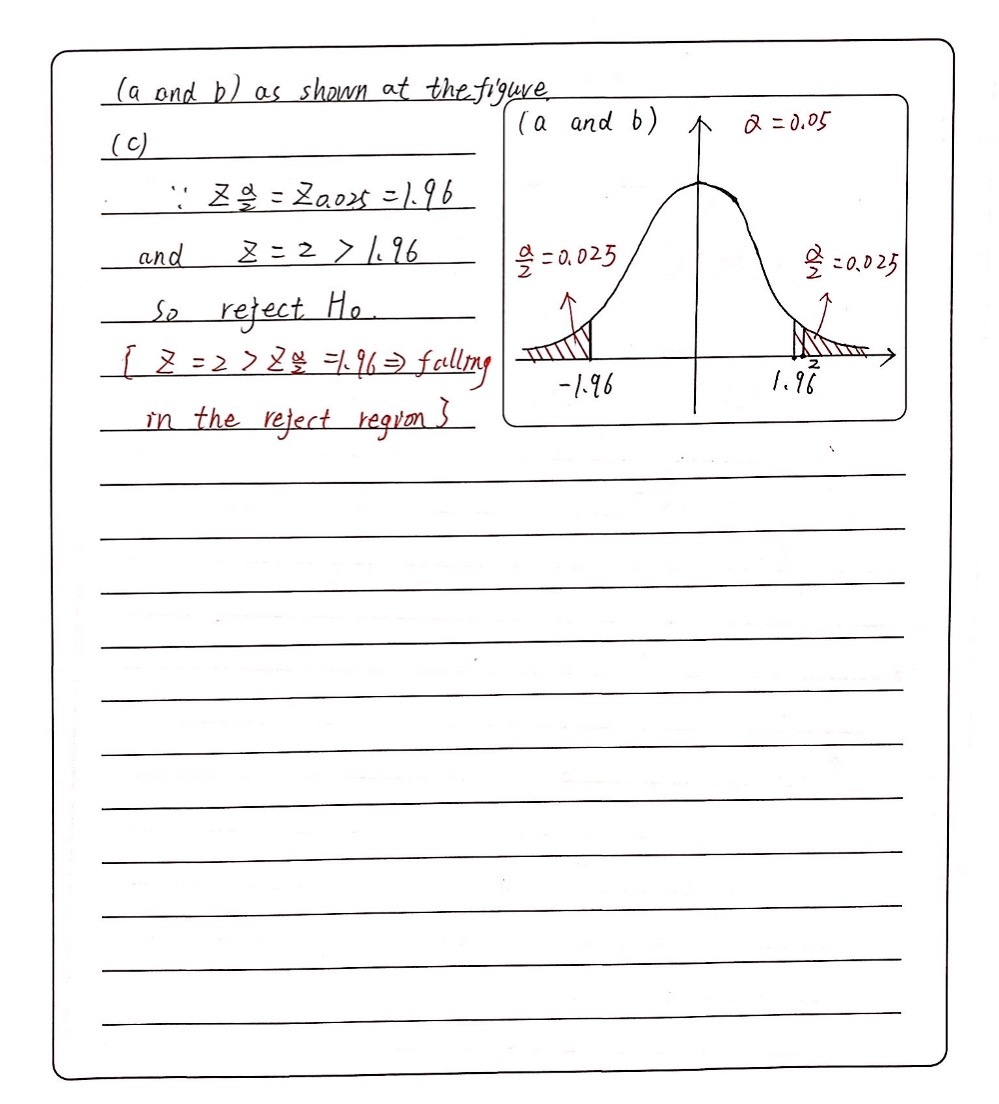 (a and b) as shown at the figure.
(c)
∵ Z α/2 = Z 0.025 = 1.96
and Z = 2 > 1.96
so reject H₀.
[ Z = 2 > Z α/2 = 1.96 ⇒ falling
in the reject region }
(a and b)
α = 0.05
α/2 = 0.025
α/2 = 0.025
-1.96
1.96
2